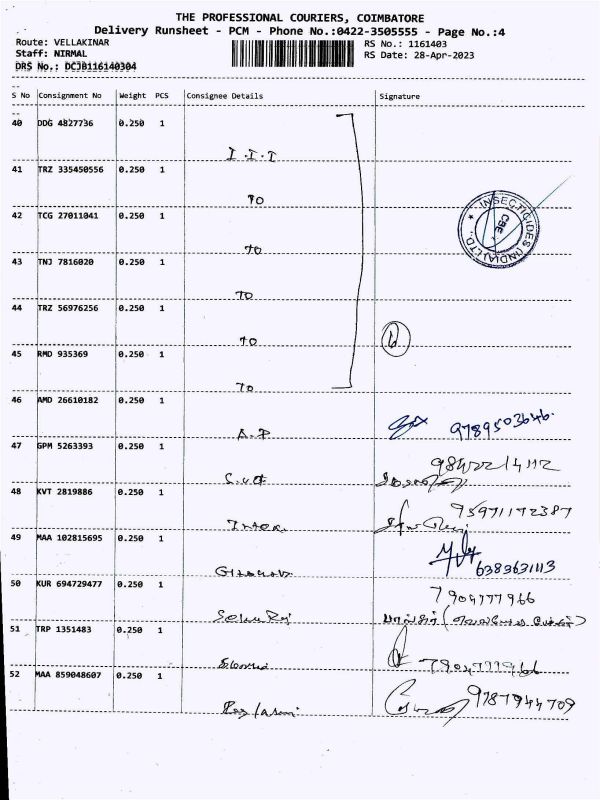 THE PROFESSIONAL COURIERS, COIMBATORE
Delivery Runsheet - PCM - Phone No.:0422-3505555 - Page No.:4
Route: VELLAKINAR RS No.: 1161403
Staff: NIRMAL RS Date: 28-Apr-2023
DRS No.: DCJB116140304
S No Consignment No Weight PCS Consignee Details Signature
40 DDG 4827736 0.250 1
I.I.I
41 TRZ 335450556 0.250 1
TO
42 TCG 27011041 0.250 1
TO
INSECTICIDES (INDIA) LTD. CBE
43 TNJ 7816020 0.250 1
TO
44 TRZ 56976256 0.250 1
TO
6
45 RMD 935369 0.250 1
TO
46 AMD 26610182 0.250 1
A.P 9789503646.
47 GPM 5263393 0.250 1
9842214112
48 KVT 2819886 0.250 1
95971172387
49 MAA 102815695 0.250 1
6383631113
50 KUR 694729477 0.250 1
7904777966
51 TRP 1351483 0.250 1
7904777966
52 MAA 859048607 0.250 1
9787944709